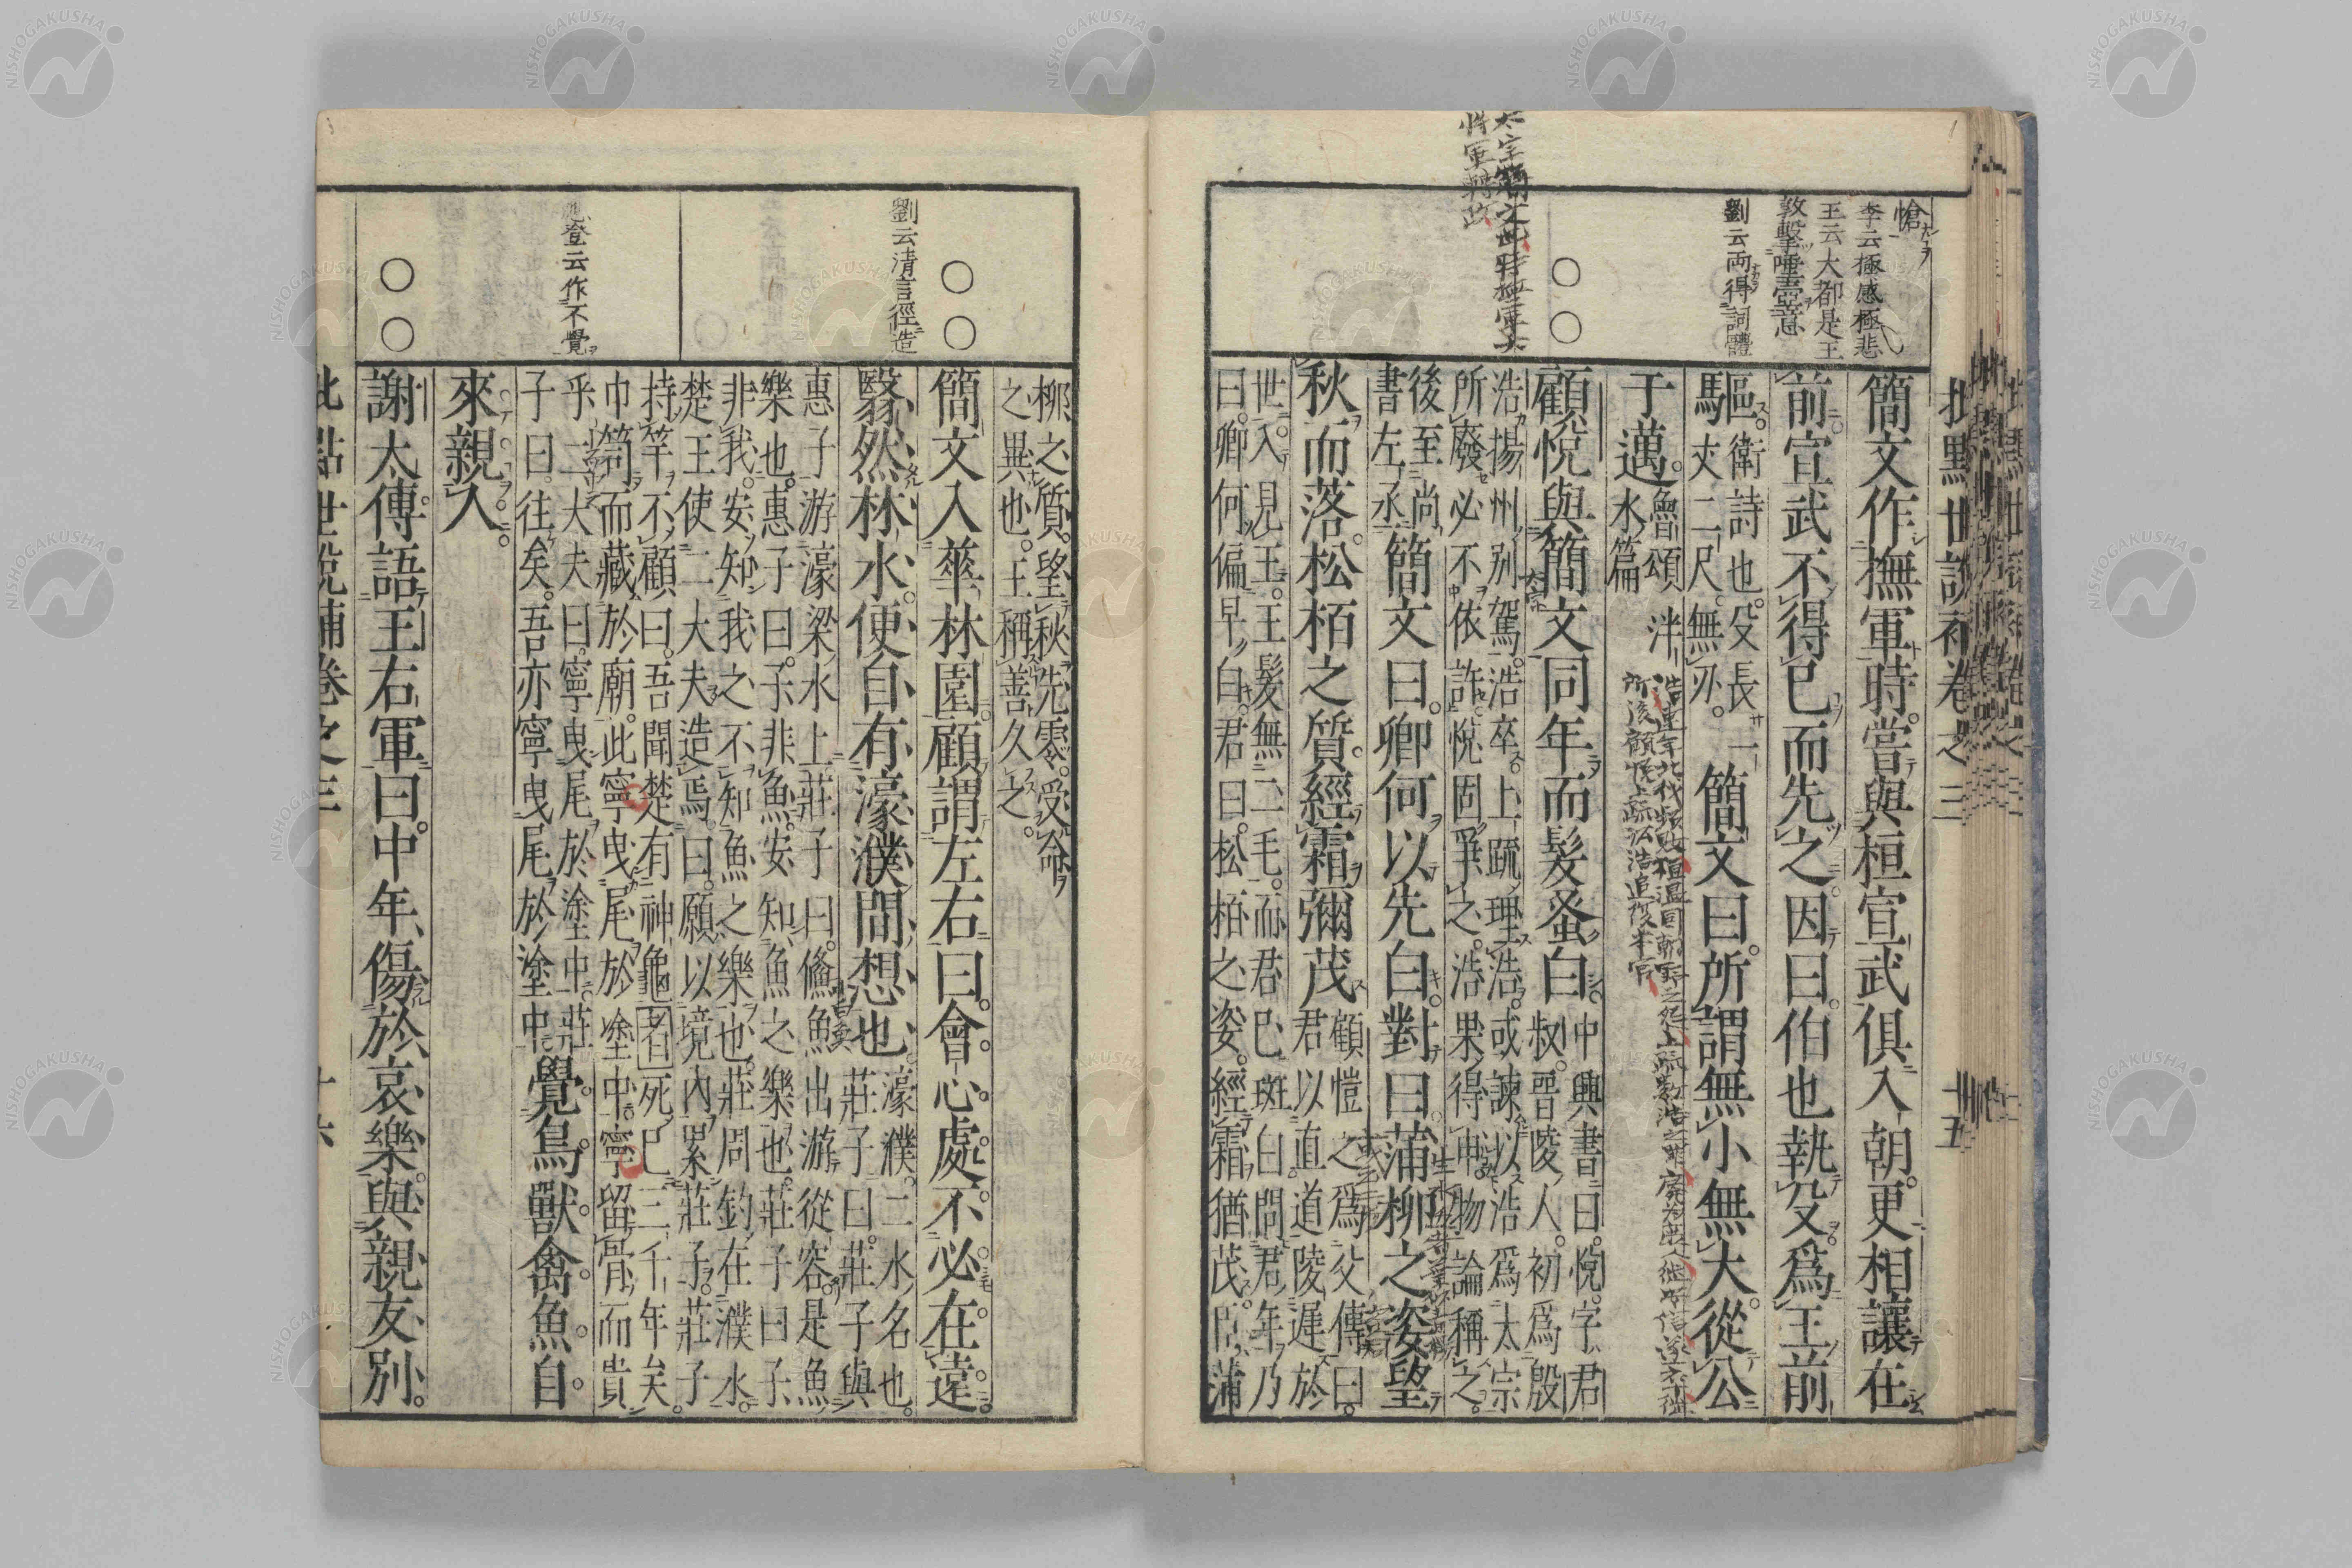 批點世說補卷之三
十五
愴
李云極感極悲
王云大都是王
敦擊唾壺意
劉云両得詞體
簡文作撫軍時。當與桓宣武俱入朝。更相讓在
前。宣武不得已而先之。因曰。伯也執殳。爲王前
驅。衛詩也。殳長一
駆丈二尺。無刃。
簡文曰。所謂無小無大。從公
于邁。
魯頌泮
水篇
顧悅與簡文同年。而髮蚤白。
中興書曰。悅字君
叔。晉陵人。初爲殷
浩揚州別駕。浩卒。上疏理浩。或諫以浩爲太宗
所廢。必不依許。悅固爭之。浩果得申。物論稱之。
後至尚
書左丞
簡文曰。卿何以先白。對曰。蒲柳之姿。望
秋而落。松栢之質。經霜彌茂
顧愷之爲父傳曰。
君以直道陵遲於
世。入見王。王髮無二毛。而君已斑白。問君年。乃
曰。卿何偏早白。君曰。松栢之姿。經霜猶茂。臣蒲
柳之質。望秋先零。受命
之異也。王稱善久之。
劉云清言徑造
簡文入華林園。顧謂左右曰。會心處。不必在遠。
翳然林水。便自有濠濮間想也。
濠濮。二水名也。
莊子曰。莊子與
惠子游濠梁水上。莊子曰。鯈魚出游從容。是魚
樂也。惠子曰。子非魚。安知魚之樂也。莊子曰。子
非我。安知我之不知魚之樂也。莊周釣在濮水。
楚王使二大夫造焉。曰。願以境內累莊子。莊子
持竿不顧。曰。吾聞楚有神龜者死已二千年矣。
巾笥而藏於廟。此寧曳尾於塗中。寧留骨而貴
乎。二大夫曰。寧曳尾於塗中。莊
子曰。往矣。吾亦寧曳尾於塗中。
登云作不覺
覺鳥獸禽魚。自
來親人。
謝太傅語王右軍曰。中年傷於哀樂。與親友別。
批點世說補卷之三
十六